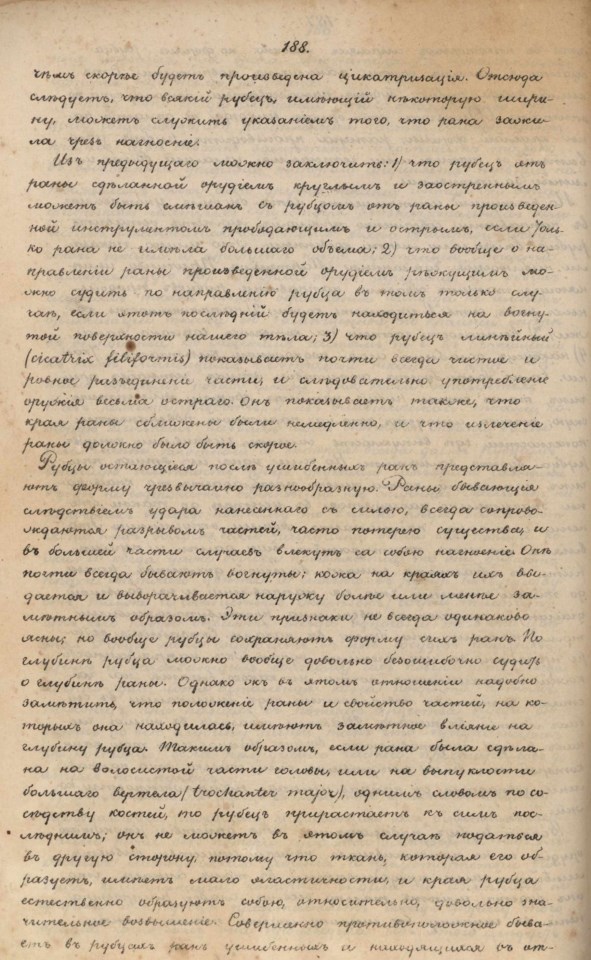 188.
чѣмъ скорѣе будетъ произведена цикатризація. Отсюда
слѣдуетъ, что всякій рубецъ, имѣющій нѣкоторую шири-
ну, можетъ служить указаніемъ того, что рана зажи-
ла чрезъ нагноеніе.
Изъ предыдущаго можно заключить: 1) что рубецъ отъ
раны сдѣланной орудіемъ круглымъ и заостреннымъ
можетъ быть смѣшанъ съ рубцомъ отъ раны произведен-
ной инструментомъ прободающимъ и острымъ, если толь-
ко рана не имѣла большаго объема; 2) что вообще о на-
правленіи раны произведенной орудіемъ рѣжущимъ мо-
жно судить по направленію рубца въ томъ только слу-
чаѣ, если этотъ послѣдній будетъ находиться на вогну-
той поверхности нашего тѣла; 3) что рубецъ линѣйный
(cicatrix filiformis) показываетъ почти всегда чистое и
ровное разъединеніе части, и слѣдовательно употребленіе
оружія весьма остраго. Онъ показываетъ также, что
края раны сближены были немедленно, и что излеченіе
раны должно было быть скорое.
Рубцы остающіеся послѣ ушибенныхъ ранъ представля-
ютъ форму чрезвычайно разнообразную. Раны бывающія
слѣдствіемъ удара нанесеннаго съ силою, всегда сопрово-
ждаются разрывомъ частей, часто потерею существа, и
въ большей части случаевъ влекутъ за собою нагноеніе. Онѣ
почти всегда бываютъ вогнуты; кожа на краяхъ ихъ вда-
дается и выворачивается наружу болѣе или менѣе за-
мѣтнымъ образомъ. Эти признаки не всегда одинаково
ясны; но вообще рубцы сохраняютъ форму сихъ ранъ. По
глубинѣ рубца можно вообще довольно безошибочно судить
о глубинѣ раны. Однако жъ въ этомъ отношеніи надобно
замѣтить, что положеніе раны и свойство частей, на ко-
торыхъ она находилась, имѣютъ замѣтное вліяніе на
глубину рубца. Такимъ образомъ, если рана была сдѣла-
на на волосистой части головы, или на выпуклости
большаго вертела (trochanter major), однимъ словомъ по со-
сѣдству костей, то рубецъ прирастаетъ къ симъ пос-
лѣднимъ; онъ не можетъ въ этомъ случаѣ податься
въ другую сторону, потому что ткань, которая его об-
разуетъ, имѣетъ мало эластичности, и края рубца
естественно образуютъ собою, относительно, довольно зна-
чительное возвышеніе. Совершенно противоположное быва-
етъ въ рубцахъ ранъ ушибенныхъ и находящихся въ от-